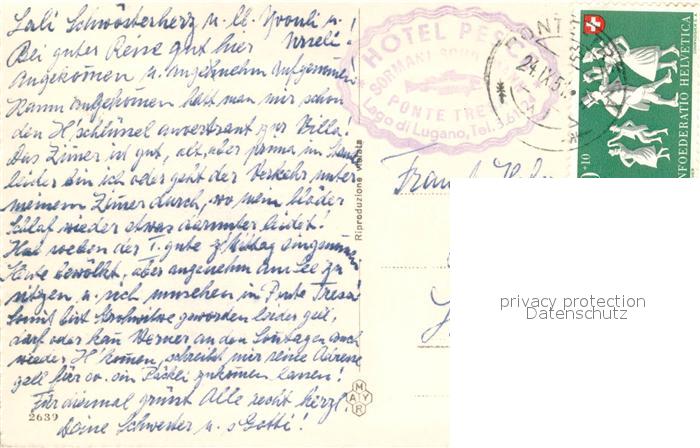 Sali Schwösterherz u. ll. Yvonli u.
Bei guter Reise gut hier Urseli!
angekommen u. angenehm aufgenommen!
Kaum aufgehomen hett man mir schon
den H'schlüssel anvertraut zur Villa!
Das Zimer ist gut, alt, aber prima im
leider bin ich oder geht der Verkehr unter
meinem Zimer durch, wo mein blöder
Schlaf wieder etwas darunter leidet!
Hab neben der T. gute z'Mittag
Heute bewölkt, aber angenehm am See zu
sitzen u. sich umsehen in Ponte Tresa!
Somit bist Strohwitwe geworden leider gell,
darf oder kan Werner an den Sontagen auch
wieder H'komen, schreibst mir seine Adresse
gell für ev. ein Päckli zukomen lassen!
Für diesmal grüsst Alle recht herzl.
Deine Schwester u. s'Gotti!
2639
Riproduzione vietata
MAYR
HOTEL PESCE
SORMANI
PONTE TRESA
Lago di Lugano, Tel. 3.61.24
PONTE TRESA
24.IX.5
CONFOEDERATIO HELVETICA
+10
Frau
privacy protection
Datenschutz